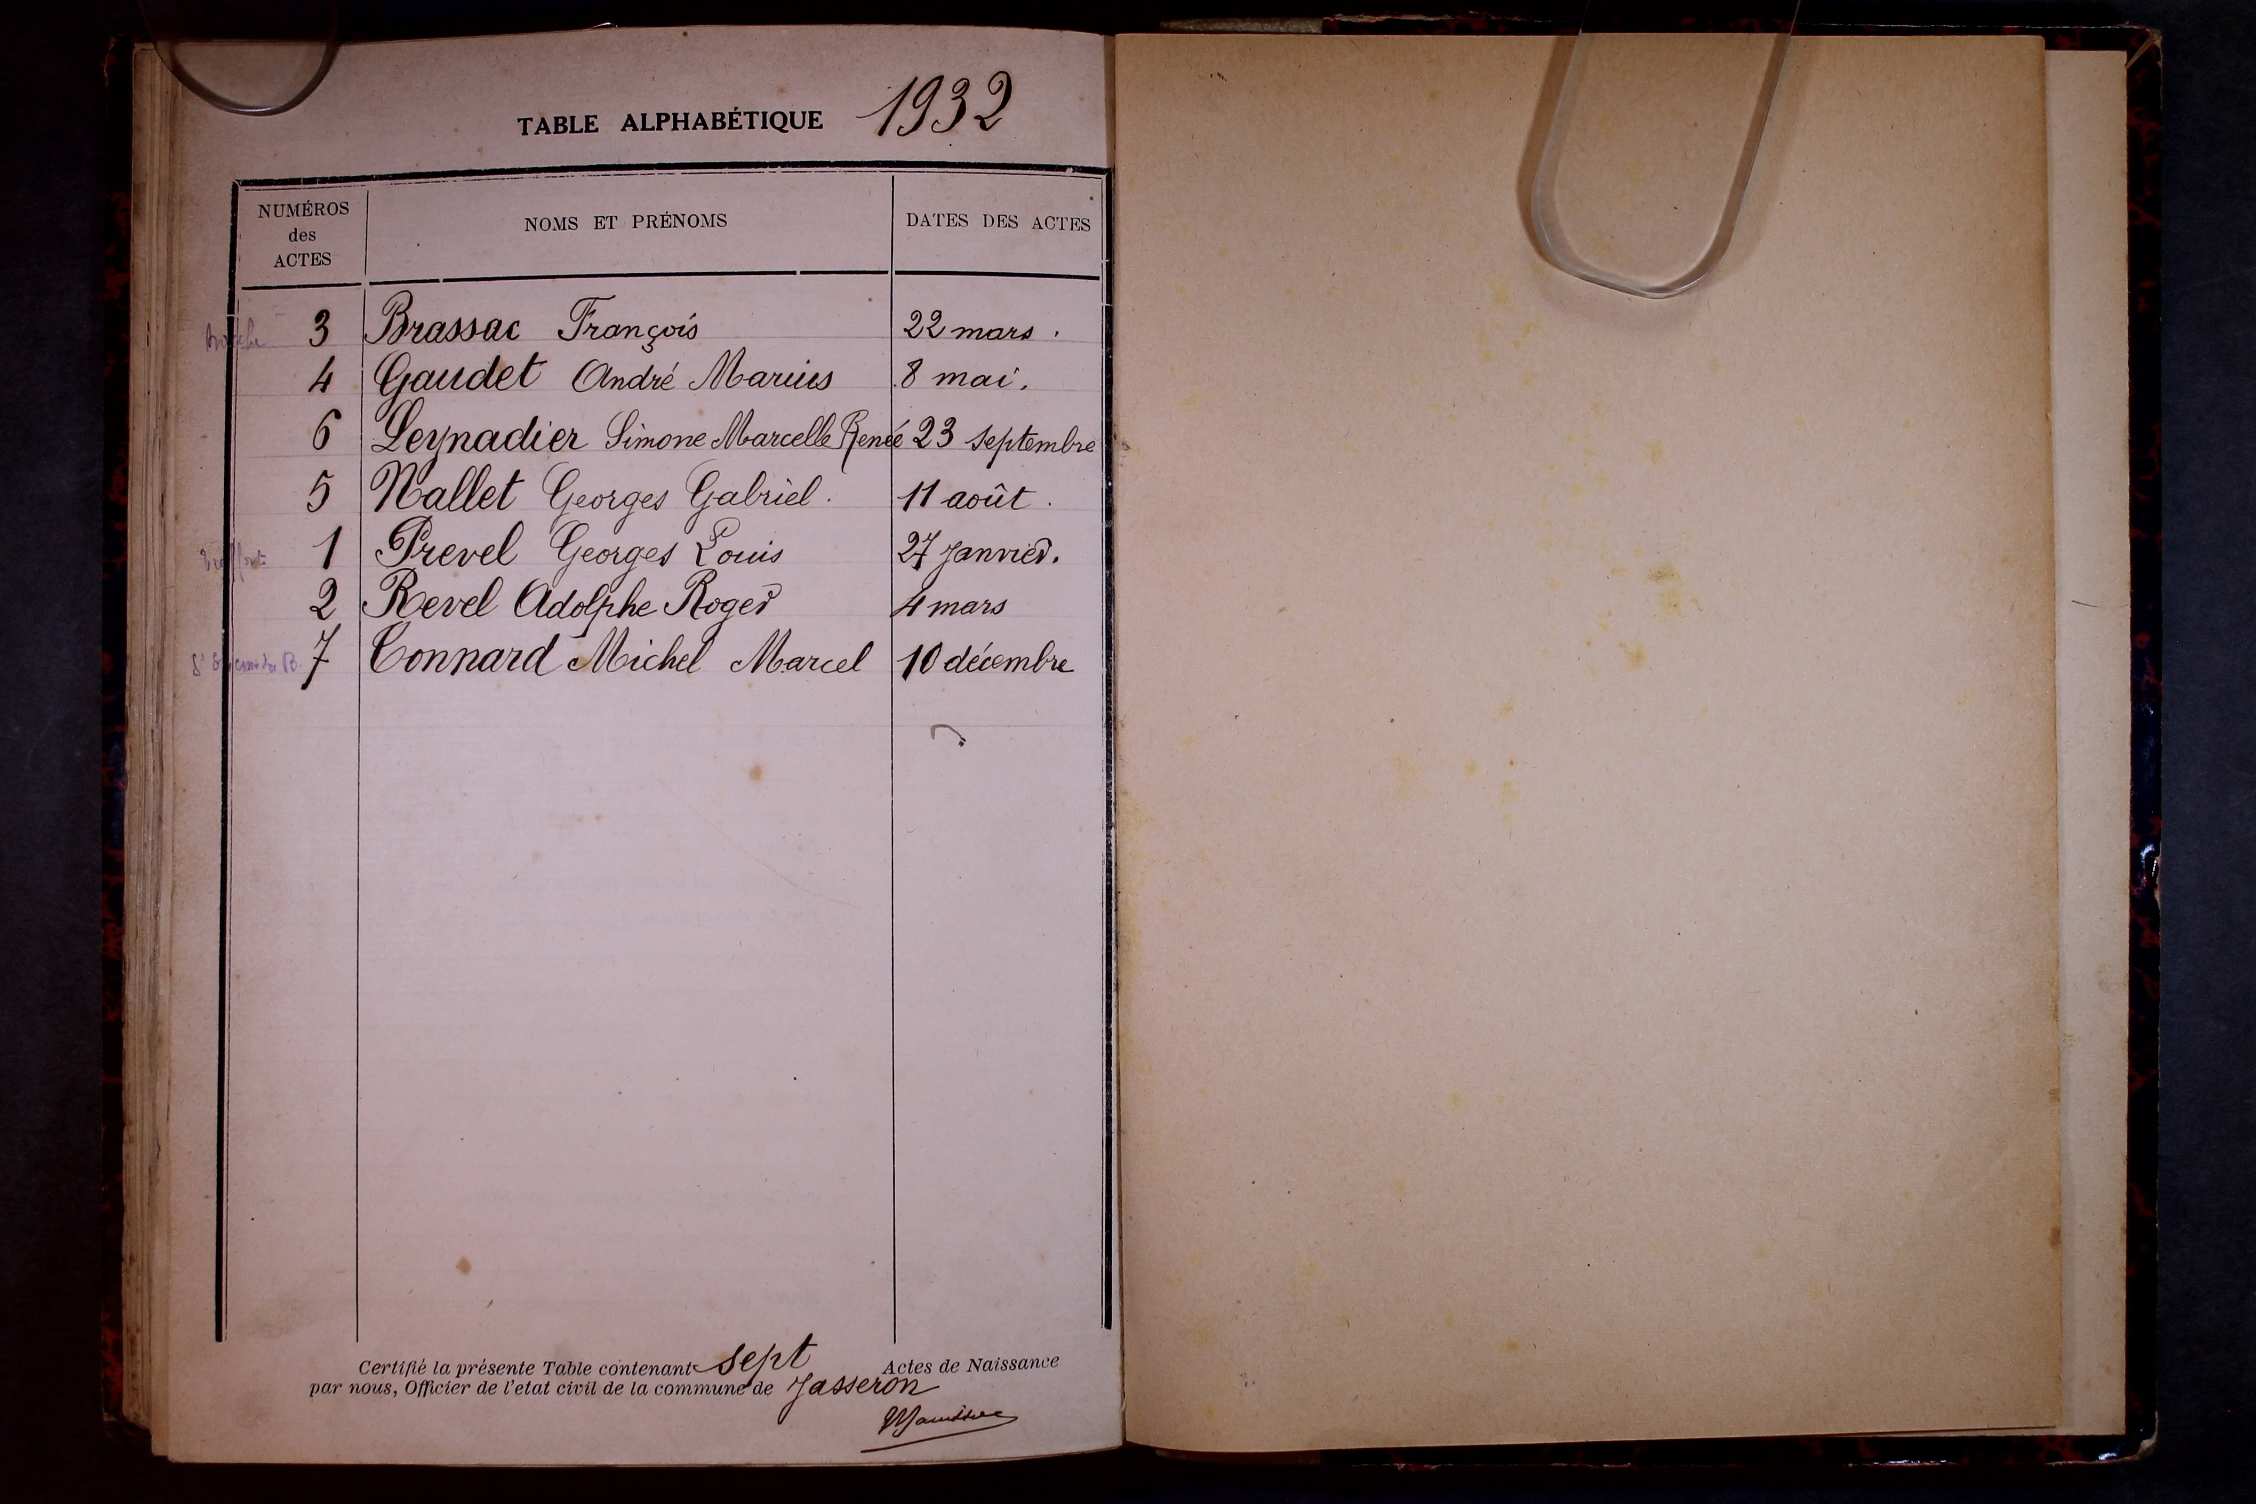 TABLE ALPHABÉTIQUE 1932
NUMÉROS des ACTES NOMS ET PRÉNOMS DATES DES ACTES
3 Brassac François 22 mars.
4 Gaudet André Marius 8 mai.
6 Leynadier Simone Marcelle Renée 23 septembre
5 Nallet Georges Gabriel. 11 août.
Treffort 1 Prevel Georges Louis 27 Janvier.
2 Revel Adolphe Roger 4 mars
St Etienne du B. 7 Tonnard Michel Marcel 10 décembre
Certifié la présente Table contenant sept Actes de Naissance
par nous, Officier de l'etat civil de la commune de Jasseron